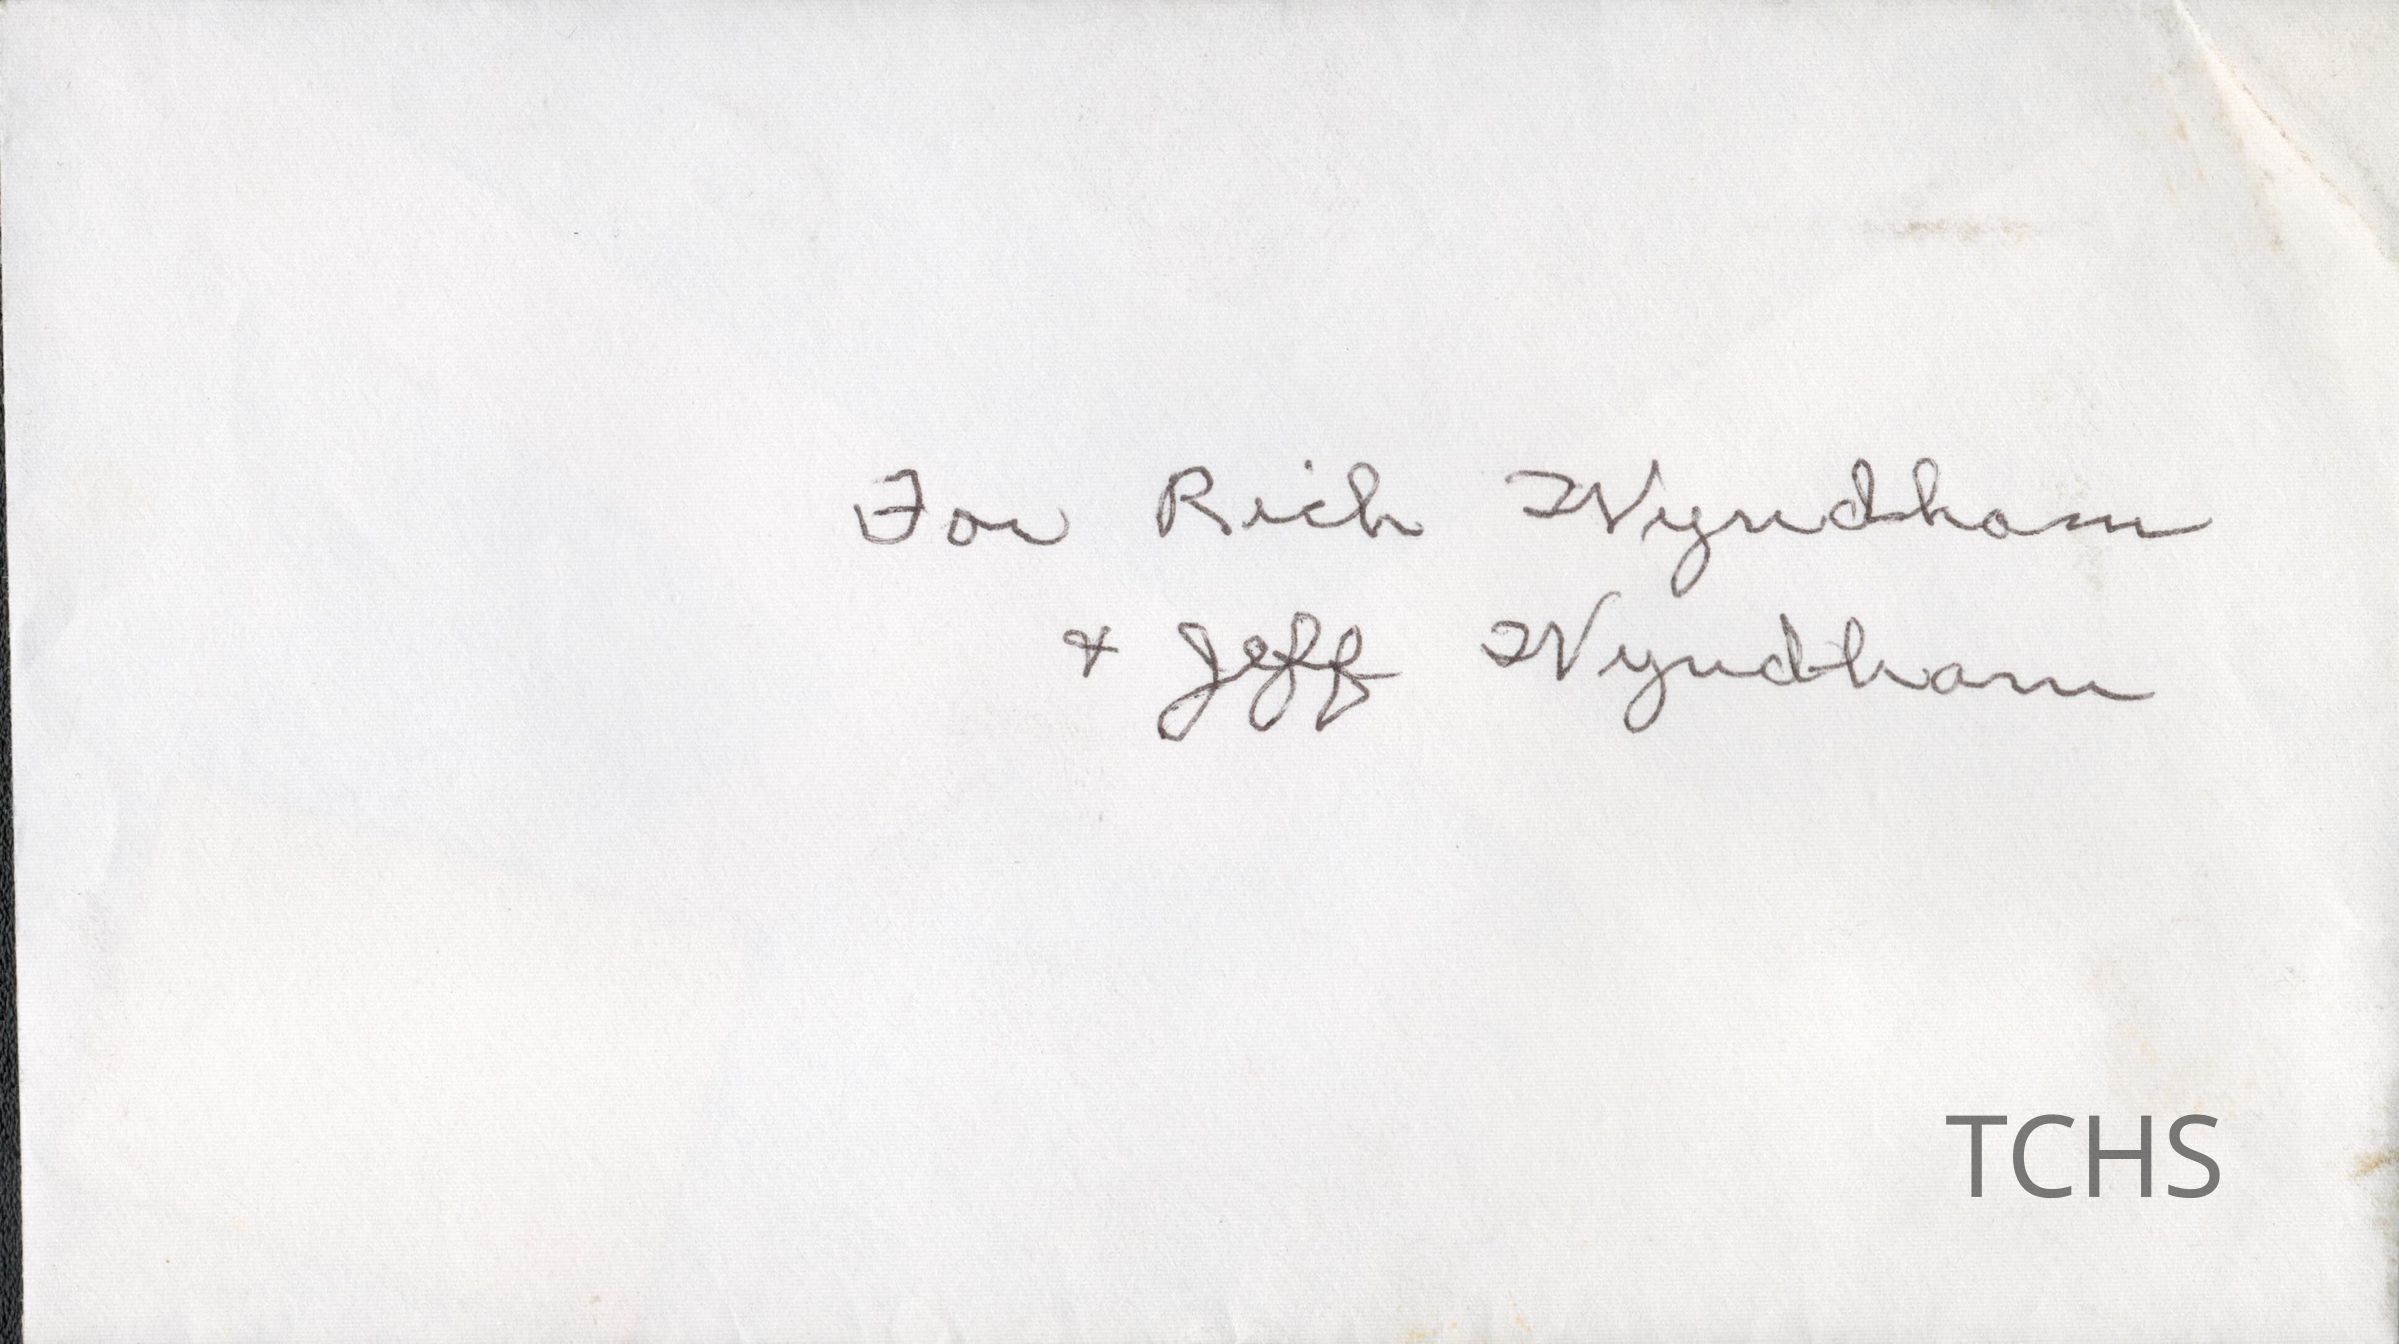 For Rich Wyndham
& Jeff Wyndham
TCHS